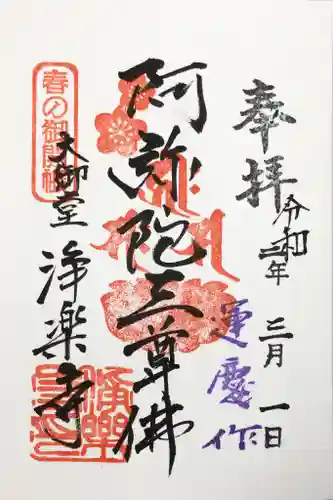 奉拝
令和三年
三月一日
運慶作
阿弥陀三尊佛
大御堂
浄楽寺
春の御開帳